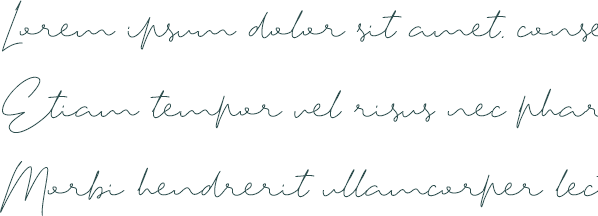 Lorem ipsum dolor sit amet, conse
Etiam tempor vel risus nec phar
Morbi hendrerit ullamcorper lect